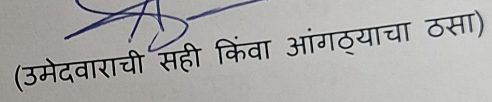 (उमेदवाराची सही किंवा आंगठ्याचा ठसा)